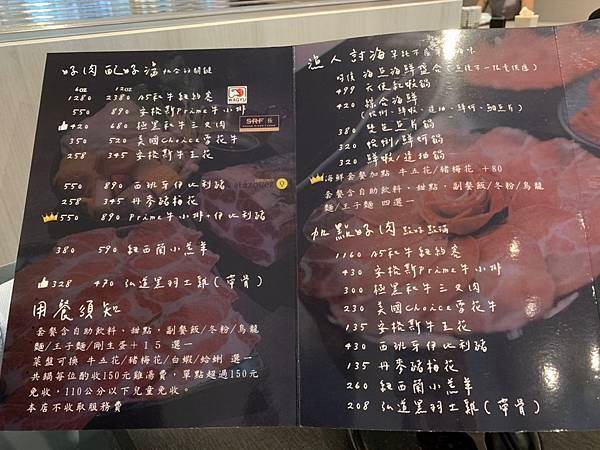 好肉 配好湯
6oz 12oz
1280 2380 A5和牛紐約客
WAGYU
550 890 安格斯Prime牛小排
SRF 極
420 680 極黑和牛三叉肉
350 520 美國Choice雪花牛
258 345 安格斯牛五花
550 890 西班牙伊比利豬
258 345 丹麥豬梅花
550 890 Prime牛小排+伊比利豬
380 590 紐西蘭小羔羊
328 490 弘道黑羽土雞(帶骨)
用餐須知
套餐含自助飲料、甜點，副餐飯/冬粉/烏龍
麵/王子麵/剛生蛋+15 選一
菜盤可換 牛五花/豬梅花/白蝦/蛤蜊 選一
共鍋每位酌收150元雞湯費，單點超過150元
免收，110公分以下兒童免收。
本店不收取服務費
漁人討海
時價 海立海鮮盛合
499 天使紅蝦餡
420 綜合海鮮
380
320 鮮蚵餡
320 鮮蝦/透抽餡
海鮮套餐加點 牛五花/豬梅花 +80
套餐含自助飲料、甜點，副餐飯/冬粉/烏龍
麵/王子麵 四選一
加點好肉
1160 A5和牛紐約客
430 安格斯Prime牛小排
300 極黑和牛三叉肉
230 美國Choice雪花牛
135 安格斯牛五花
430 西班牙伊比利豬
135 丹麥豬梅花
260 紐西蘭小羔羊
208 弘道黑羽土雞(帶骨)